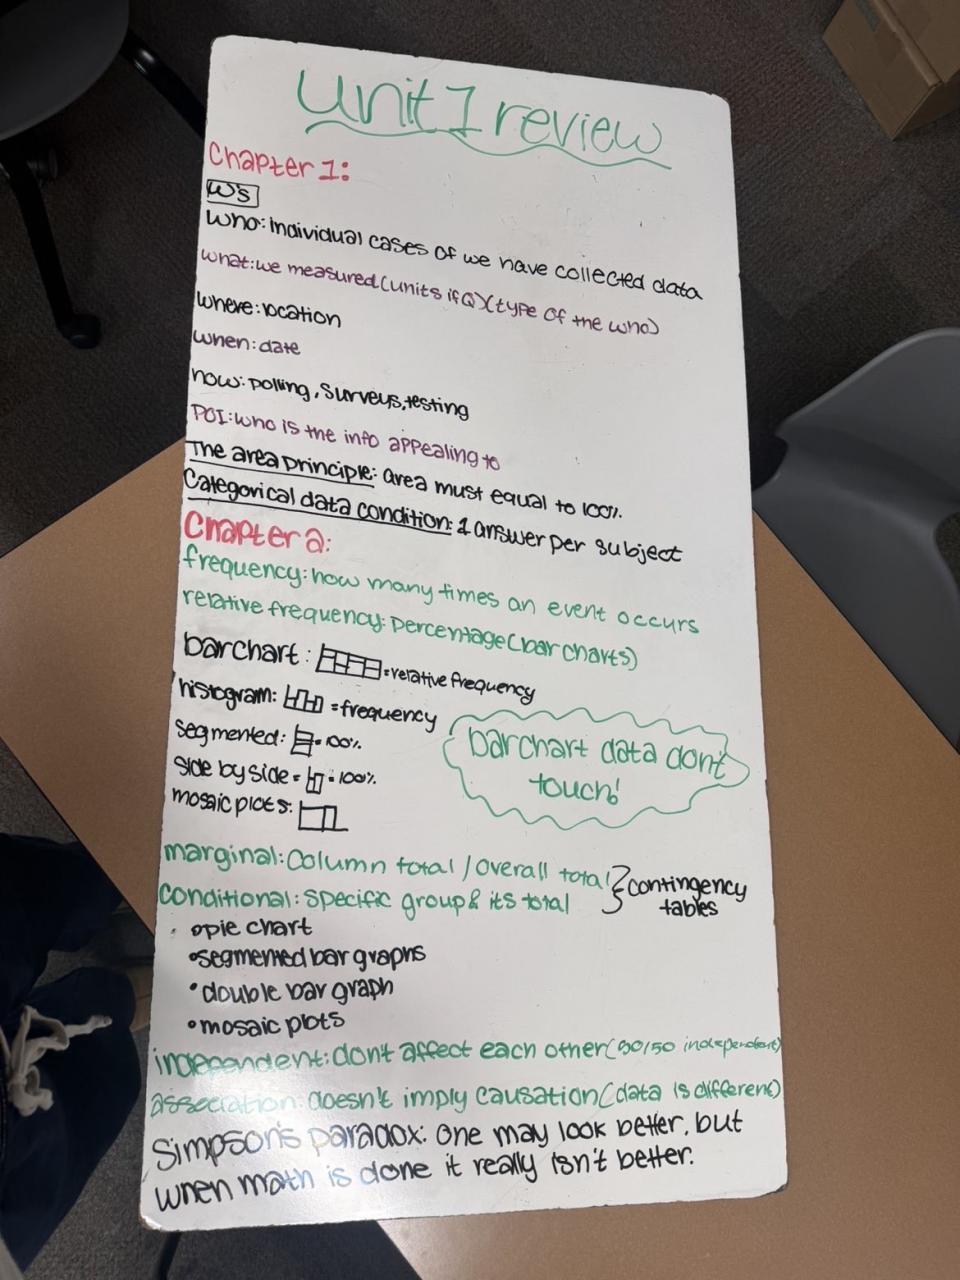 unit 1 review
Chapter 1:
W's
who: individual cases of we have collected data
what: we measured (units if Q) (type of the who)
where: location
when: date
how: polling, surveys, testing
POI: who is the info appealing to
The area principle: area must equal to 100%.
Categorical data condition: 1 answer per subject
Chapter 2:
frequency: how many times an event occurs
relative frequency: percentage (bar charts)
barchart: = relative frequency
histogram: = frequency
segmented: = 100%
side by side = = 100%
mosaic plots:
barchart data don't
touch!
marginal: column total / overall total
conditional: specific group & its total
contingency
tables
• pie chart
• segmented bar graphs
• double bar graph
• mosaic plots
independent: don't affect each other (50/50 independent)
association: doesn't imply causation (data is different)
Simpson's paradox: one may look better, but
when math is done it really isn't better.